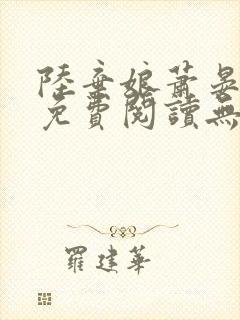 陸棄娘蕭晏
免費閱讀無
羅建華